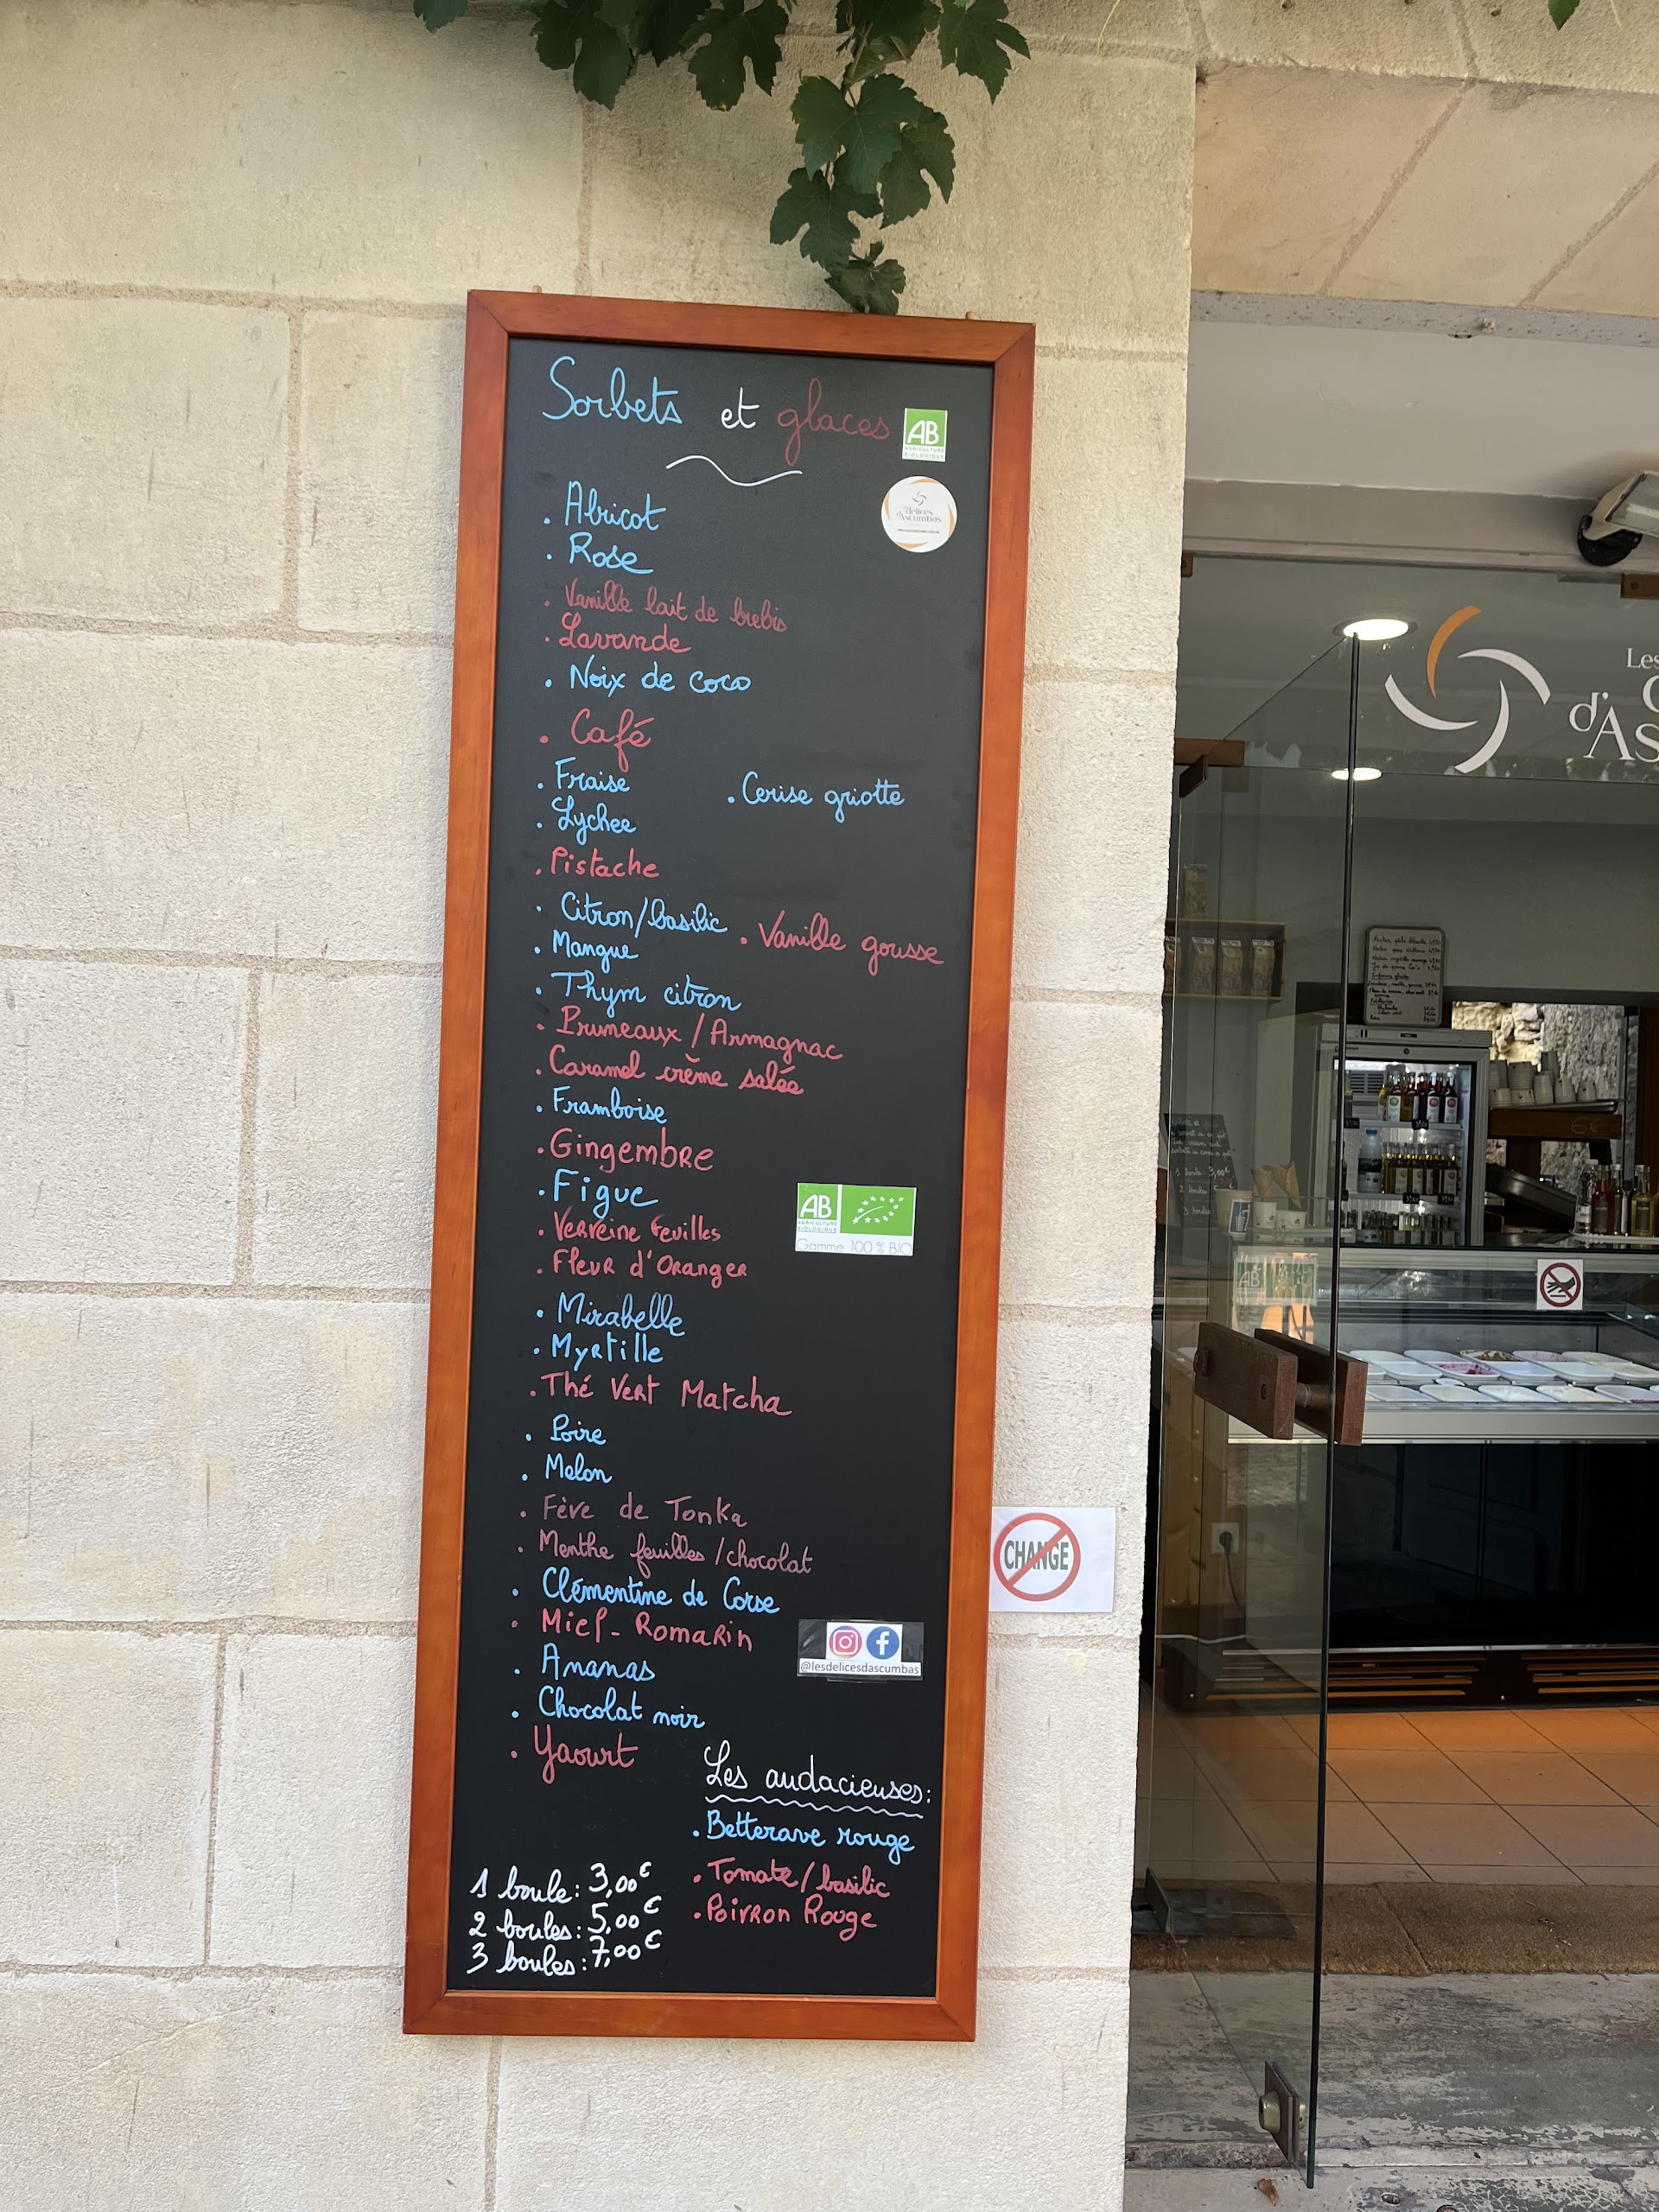 Sorbets et glaces
AB
AGRICULTURE
BIOLOGIQUE
délices
d'Ascumbas
. Abricot
. Rose
. Vanille lait de brebis
. Lavande
. Noix de coco
. Café
. Fraise
. Cerise griotte
. Lychee
. Pistache
. Citron/basilic
. Vanille gousse
. Mangue
. Thym citron
. Pruneaux / Armagnac
. Caramel crème salée
. Framboise
. Gingembre
. Figue
AB
AGRICULTURE
BIOLOGIQUE
Gamme 100 % BIO
. Verveine feuilles
. Fleur d'Oranger
. Mirabelle
. Myrtille
. Thé Vert Matcha
. Poire
. Melon
. Fève de Tonka
. Menthe feuilles / chocolat
. Clémentine de Corse
. Miel - Romarin
@lesdelicesdascumbas
. Ananas
. Chocolat noir
. Yaourt
Les audacieuses:
. Betterave rouge
. Tomate/basilic
. Poivron Rouge
1 boule: 3,00€
2 boules: 5,00€
3 boules: 7,00€
CHANGE
Les
d'As
AB